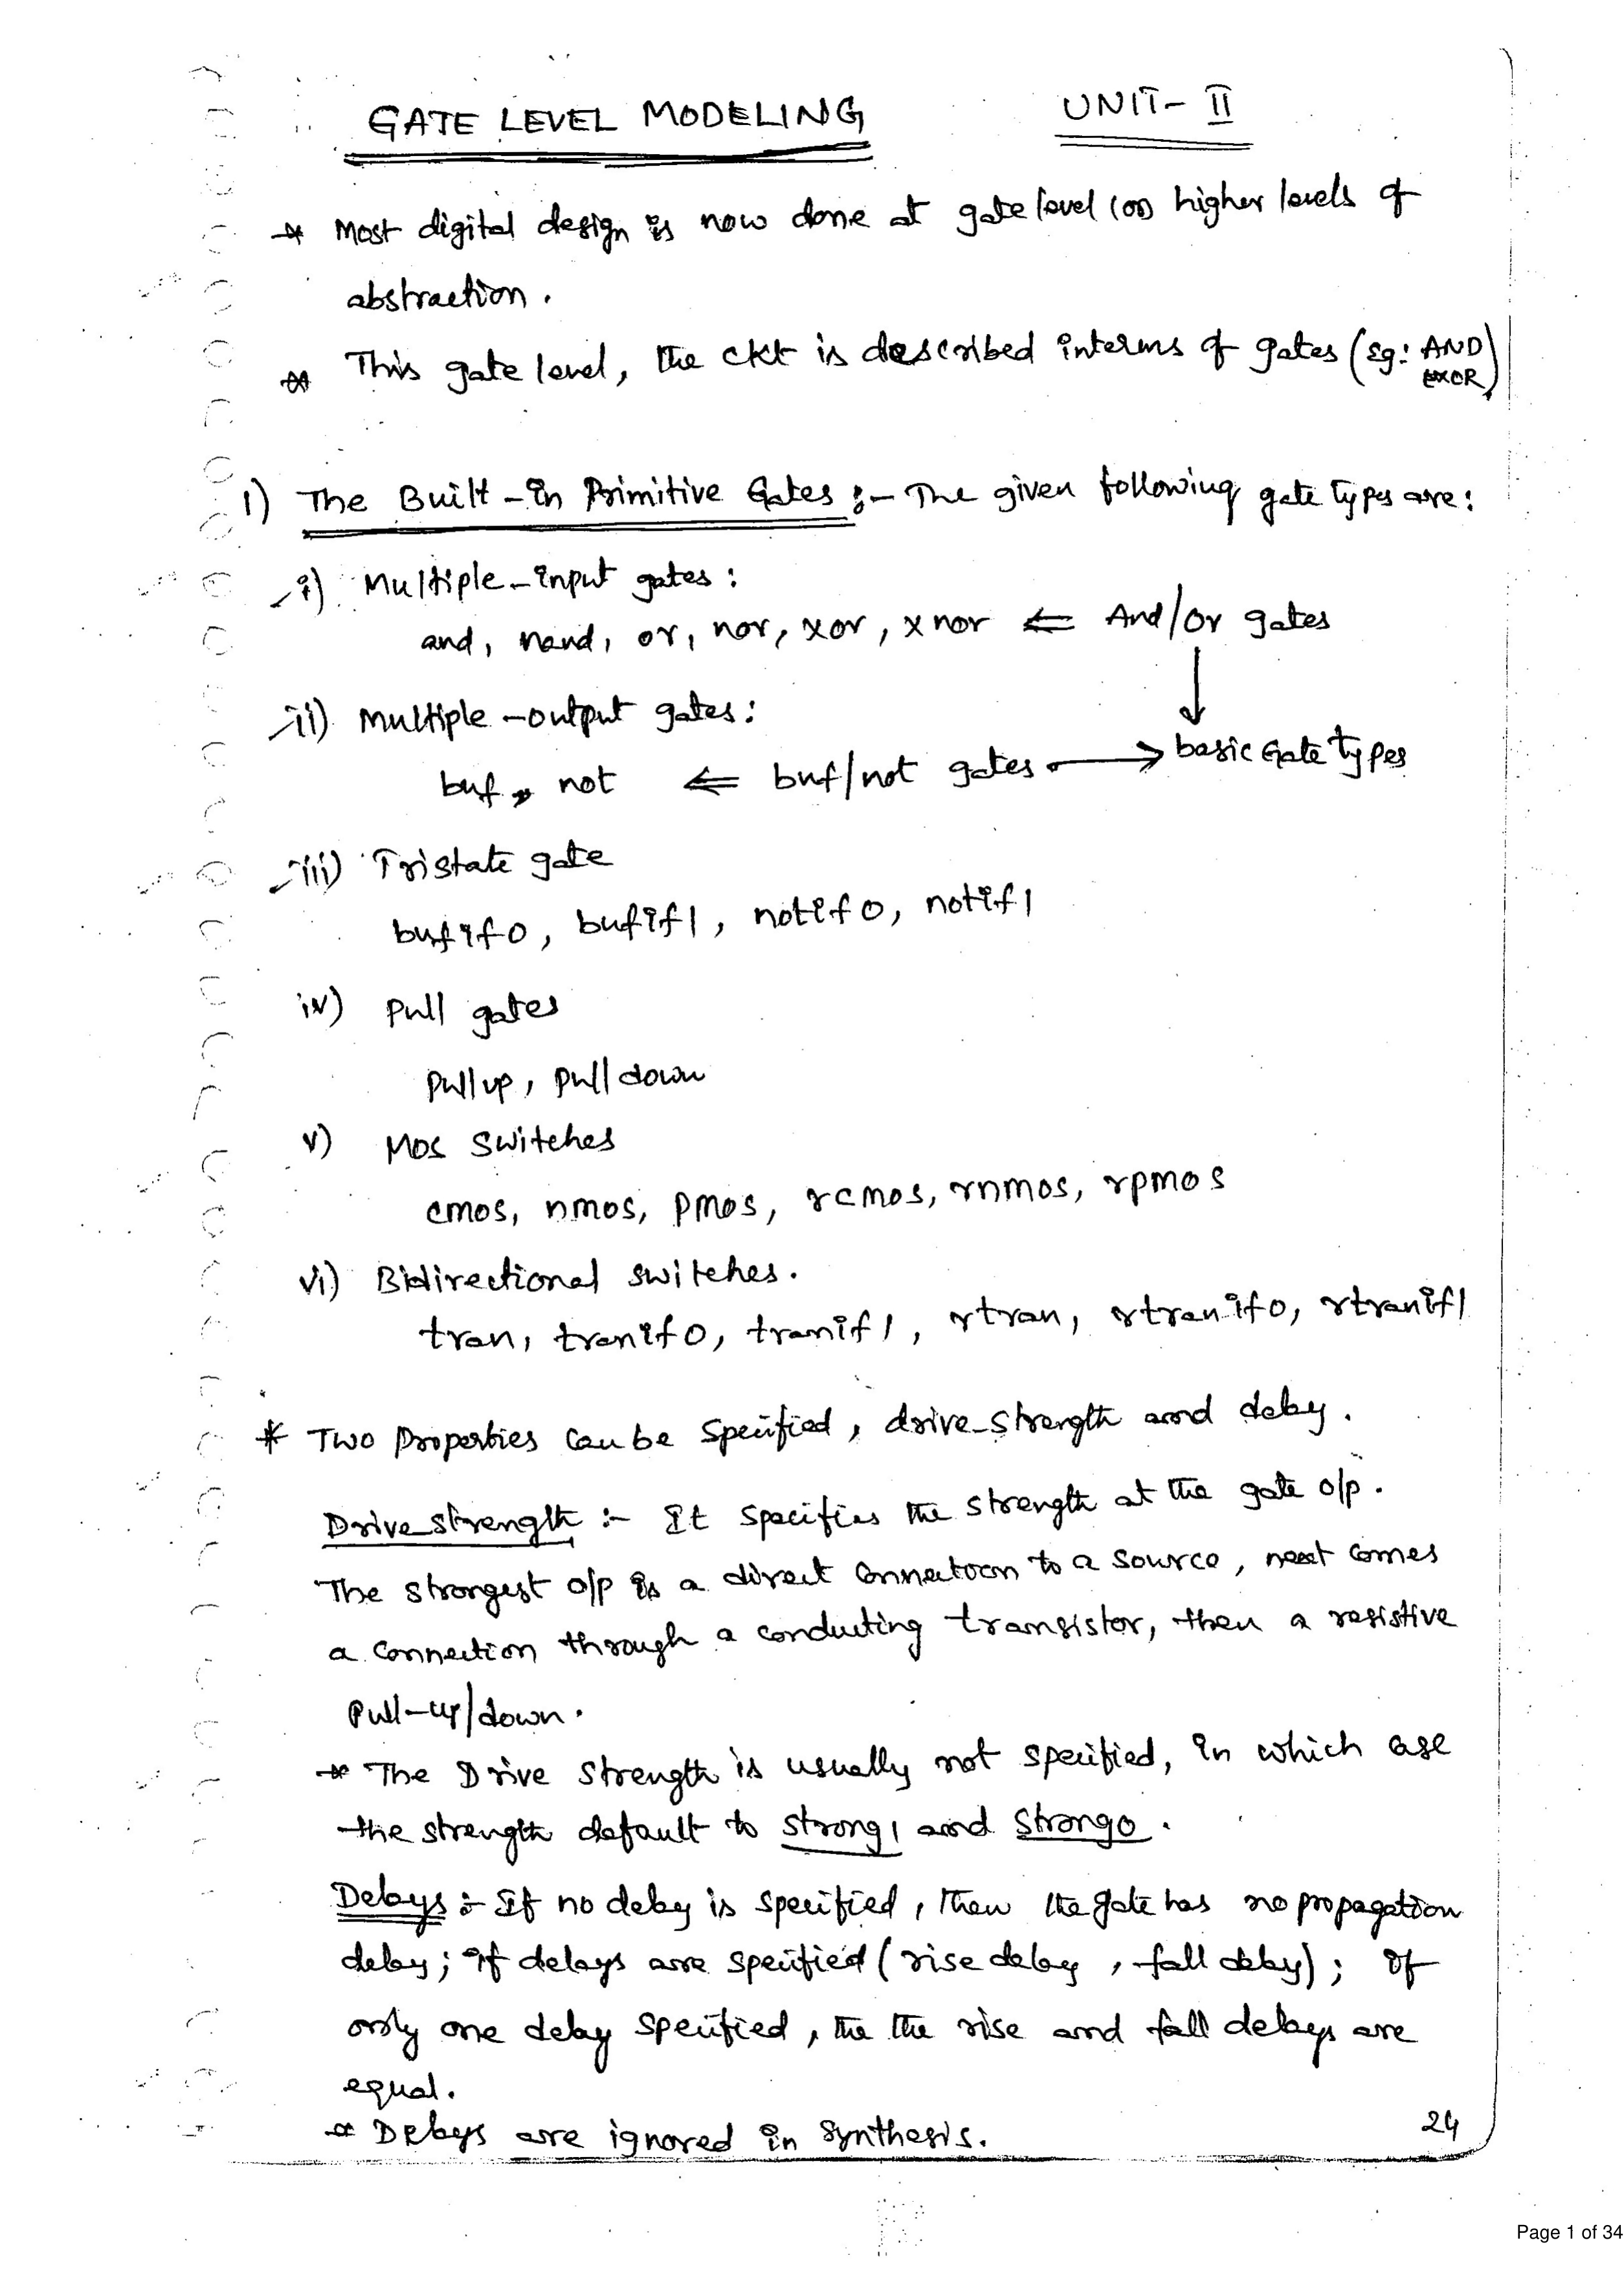 GATE LEVEL MODELING UNIT- II
* Most digital design is now done at gate level (or) higher levels of
abstraction.
* This gate level, the ckt is described interms of gates (Eg: AND
EXOR)
1) The Built-in Primitive Gates :- The given following gate types are:
i) Multiple-input gates:
and, nand, or, nor, xor, xnor ⇐ And/Or gates
↓
ii) Multiple-output gates:
buf, not ⇐ buf/not gates → basic Gate types
iii) Tristate gate
bufif0, bufif1, notif0, notif1
iv) Pull gates
Pullup, pulldown
v) MOS switches
cmos, nmos, pmos, rcmos, rnmos, rpmos
vi) Bidirectional switches.
tran, tranif0, tranif1, rtran, rtranif0, rtranif1
* Two Properties can be specified, drive_strength and delay.
Drive_strength :- It specifies the strength at the gate o/p.
The strongest o/p is a direct connectoon to a source, next comes
a connection through a conducting transistor, then a resistive
Pull-up/down.
* The Drive strength is usually not specified, in which ase
the strength default to strong1 and strong0.
Delays :- If no delay is specified, then the gate has no propagation
delay; if delays are specified (rise delay, fall delay); if
only one delay specified, the the rise and fall delays are
equal.
* Delays are ignored in synthesis.
24
Page 1 of 34